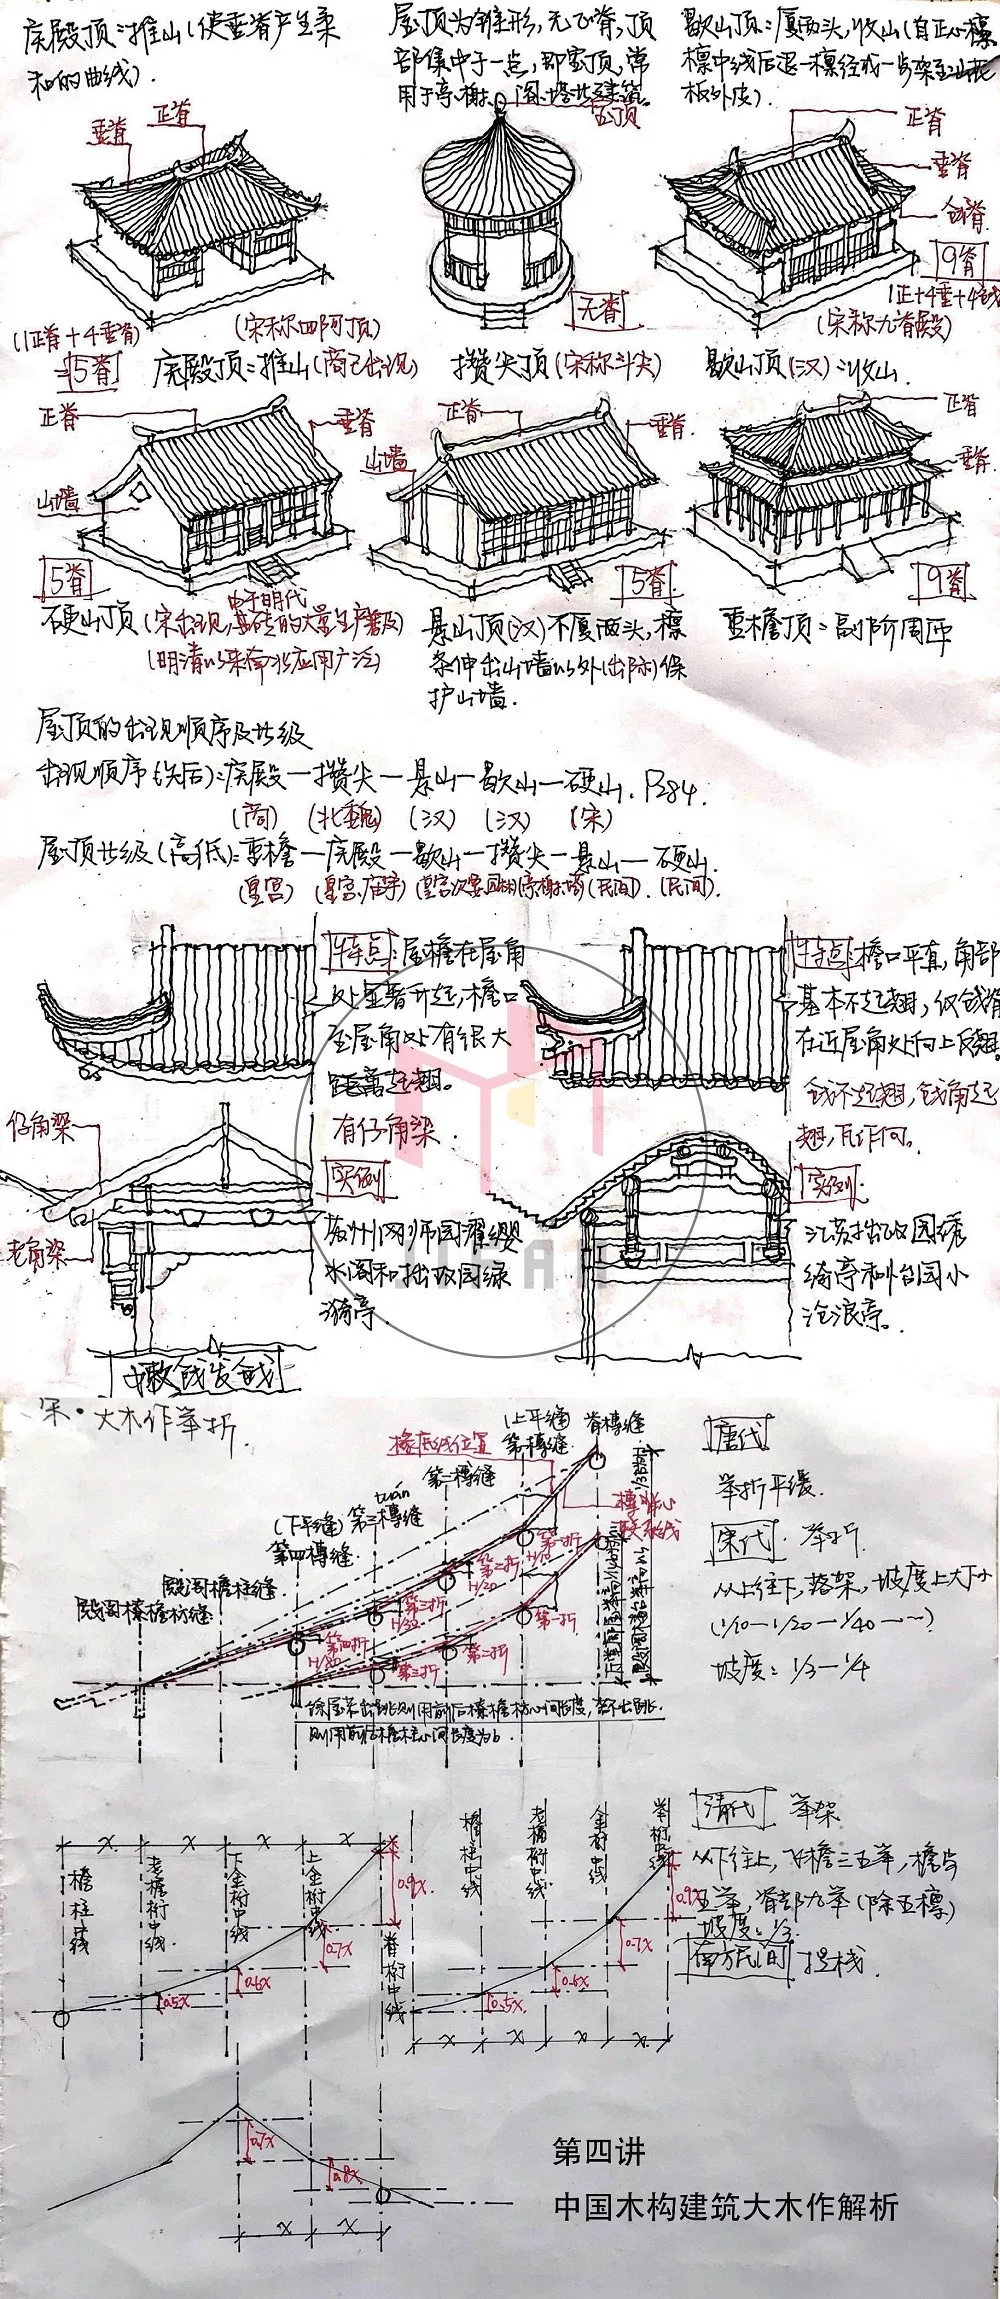 庑殿顶:推山(使垂脊产生柔
和的曲线).
屋顶为锥形,无正脊,顶
部集中于一点,即宝顶,常
用于亭、榭、阁、塔此建筑。
歇山顶:厦两头,收山(自正心檩
檩中线后退一檩径或一步架至山花
板外皮).
正脊
垂脊
宝顶
正脊
垂脊
戗脊
9脊
1正+4垂+4戗
无脊
(1正脊+4垂脊)
=5脊
(宋称四阿顶)
(宋称九脊殿)
庑殿顶:推山(商已出现)
攒尖顶(宋称斗尖)
歇山顶(汉):收山
正脊
垂脊
山墙
5脊
正脊
垂脊
山墙
5脊
正脊
垂脊
9脊
由于明代
硬山顶(宋出现,砖的大量生产普及)
(明清以来南北应用广泛)
悬山顶(汉)不厦两头,檩
条伸出山墙以外(出际)保
护山墙.
重檐顶:副阶周匝
屋顶的出现顺序及等级
出现顺序(先后):庑殿—攒尖—悬山—歇山—硬山. P284.
(商) (北魏) (汉) (汉) (宋)
屋顶等级(高低):重檐—庑殿—歇山—攒尖—悬山—硬山.
(皇宫) (皇宫、庙宇) (民间). (民间).
特点:屋檐在屋角
处显著升起,檐口
至屋角处有很大
距离起翘。
有仔角梁.
实例
苏州网师园濯缨
水阁和拙政园绿
漪亭.
仔角梁
老角梁
嫩戗发戗
特点:檐口平直,角部
基本不起翘,仅戗脊
在近屋角处向上反翘.
戗不起翘,戗角起
翘,瓦作何。
实例
江苏拙政园绣
绮亭和怡园小
沧浪亭。
宋·大木作举折.
橡底线位置
(上平缝)
第一槫缝
脊槫缝
第二槫缝
tuán
第三槫缝
(下平缝)
第四槫缝.
殿阁檐柱缝.
殿阁橑檐枋缝
第一折
H/10
第二折
H/20
第三折
第四折
H/80
第一折
第二折
第三折
徐屋架出跳则用前后橑檐枋心间长度,若不出跳.
则用前后檐柱心间长度为b.
唐代
举折平缓.
宋代:举折.
从上往下,落架,坡度上大下小
(1/10—1/20—1/40—~)
坡度:1/3—1/4
清代 举架
从下往上,飞檐三五举,檐步
五举,脊部九举(除五檩)
坡度:1/3.
南方民间 提栈.
x x x x
檐柱中线
老檐桁中线
下金桁中线
上金桁中线
脊桁中线
0.5x
0.6x
0.7x
0.9x
檐柱中线
老檐桁中线
金桁中线
脊桁中线
0.5x
0.6x
0.7x
0.9x
x x x x
0.7x
0.8x
x x
第四讲
中国木构建筑大木作解析